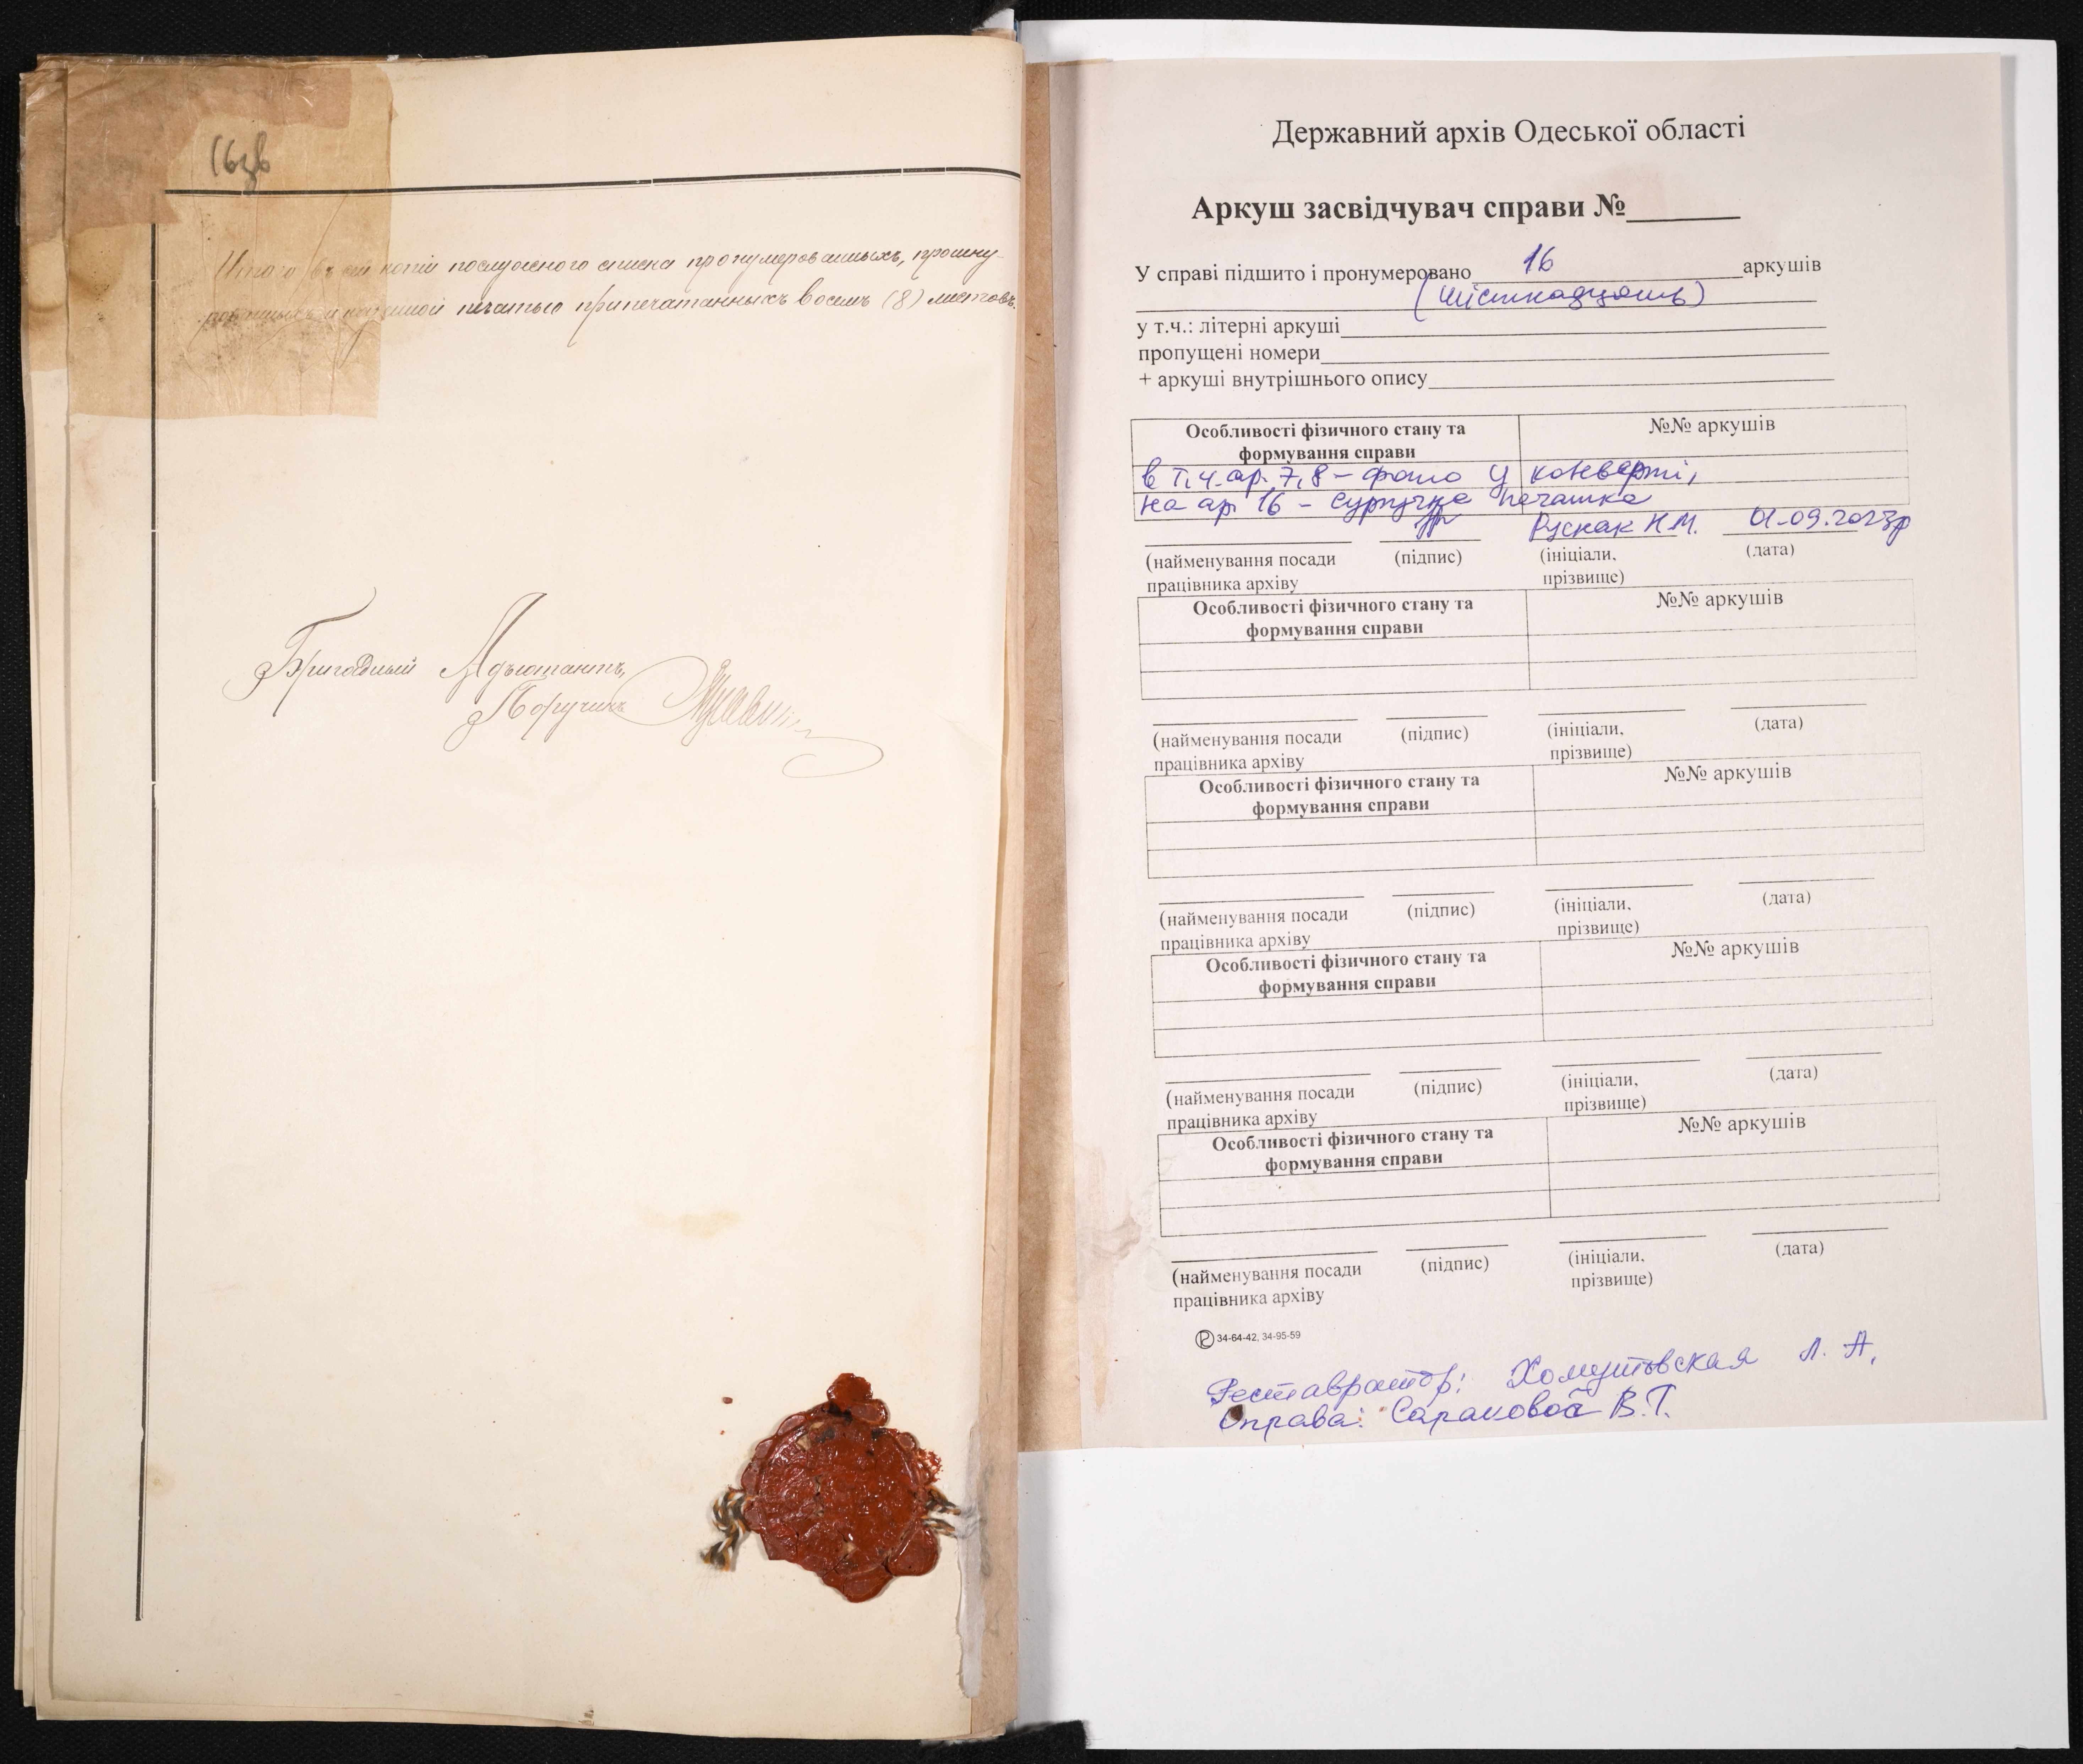 16зв
Итого въ сей копіи послужного списка пронумерованныхъ, прошну-
рованныхъ и казенной печатью припечатанныхъ восемь (8) листовъ.
Бригадный Адъютантъ,
Поручикъ
Державний архів Одеської області
Аркуш засвідчувач справи №______
У справі підшито і пронумеровано 16 аркушів
(шістнадцять)
у т.ч.: літерні аркуші
пропущені номери
+ аркуші внутрішнього опису
Особливості фізичного стану та формування справи
№№ аркушів
в т.ч. ар. 7,8 – фото у конверті,
на ар 16 – сургучна печатка
Руснак Н.М. 01.09.2023р
(найменування посади працівника архіву
(підпис)
(ініціали, прізвище)
(дата)
Особливості фізичного стану та формування справи
№№ аркушів
(найменування посади працівника архіву
(підпис)
(ініціали, прізвище)
(дата)
Особливості фізичного стану та формування справи
№№ аркушів
(найменування посади працівника архіву
(підпис)
(ініціали, прізвище)
(дата)
Особливості фізичного стану та формування справи
№№ аркушів
(найменування посади працівника архіву
(підпис)
(ініціали, прізвище)
(дата)
Особливості фізичного стану та формування справи
№№ аркушів
(найменування посади працівника архіву
(підпис)
(ініціали, прізвище)
(дата)
34-64-42, 34-95-59
Реставратор: Хомутовская Л. А.
Оправа: В.Т.